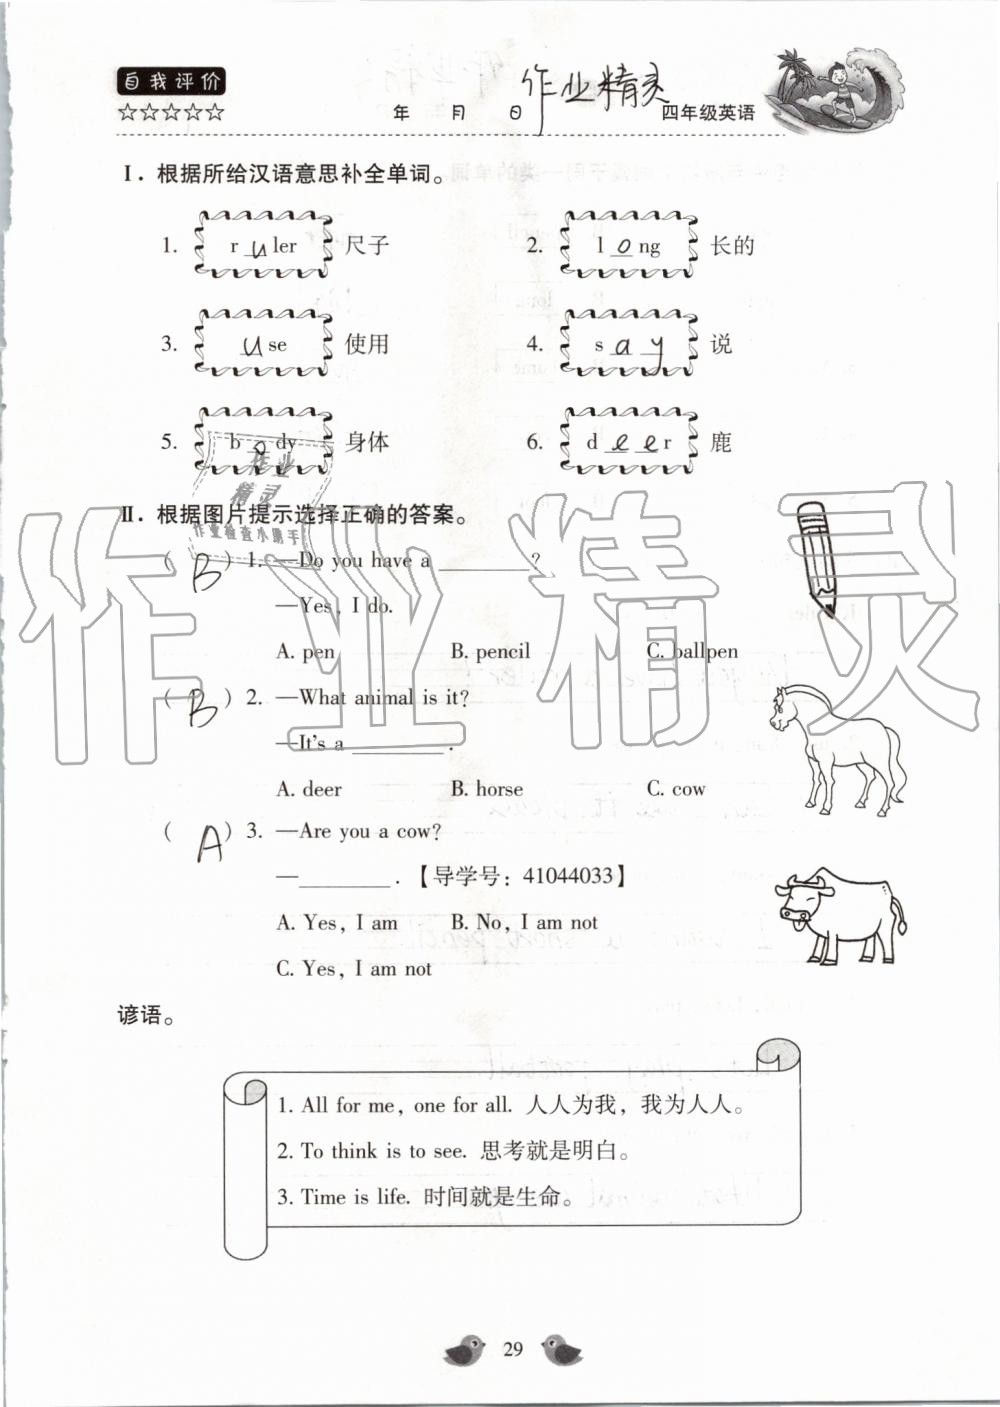 自我评价
☆☆☆☆☆
年 月 日 作业精灵 四年级英语
Ⅰ. 根据所给汉语意思补全单词。
1. r u ler 尺子 2. l o ng 长的
3. u se 使用 4. s a y 说
5. b o dy 身体 6. d e e r 鹿
作业精灵
作业检查小助手
Ⅱ. 根据图片提示选择正确的答案。
( B ) 1. —Do you have a ________?
—Yes, I do.
A. pen B. pencil C. ballpen
( B ) 2. —What animal is it?
—It's a ________.
A. deer B. horse C. cow
( A ) 3. —Are you a cow?
—________. 【导学号：41044033】
A. Yes, I am B. No, I am not
C. Yes, I am not
谚语。
1. All for me, one for all. 人人为我，我为人人。
2. To think is to see. 思考就是明白。
3. Time is life. 时间就是生命。
29
作业精灵